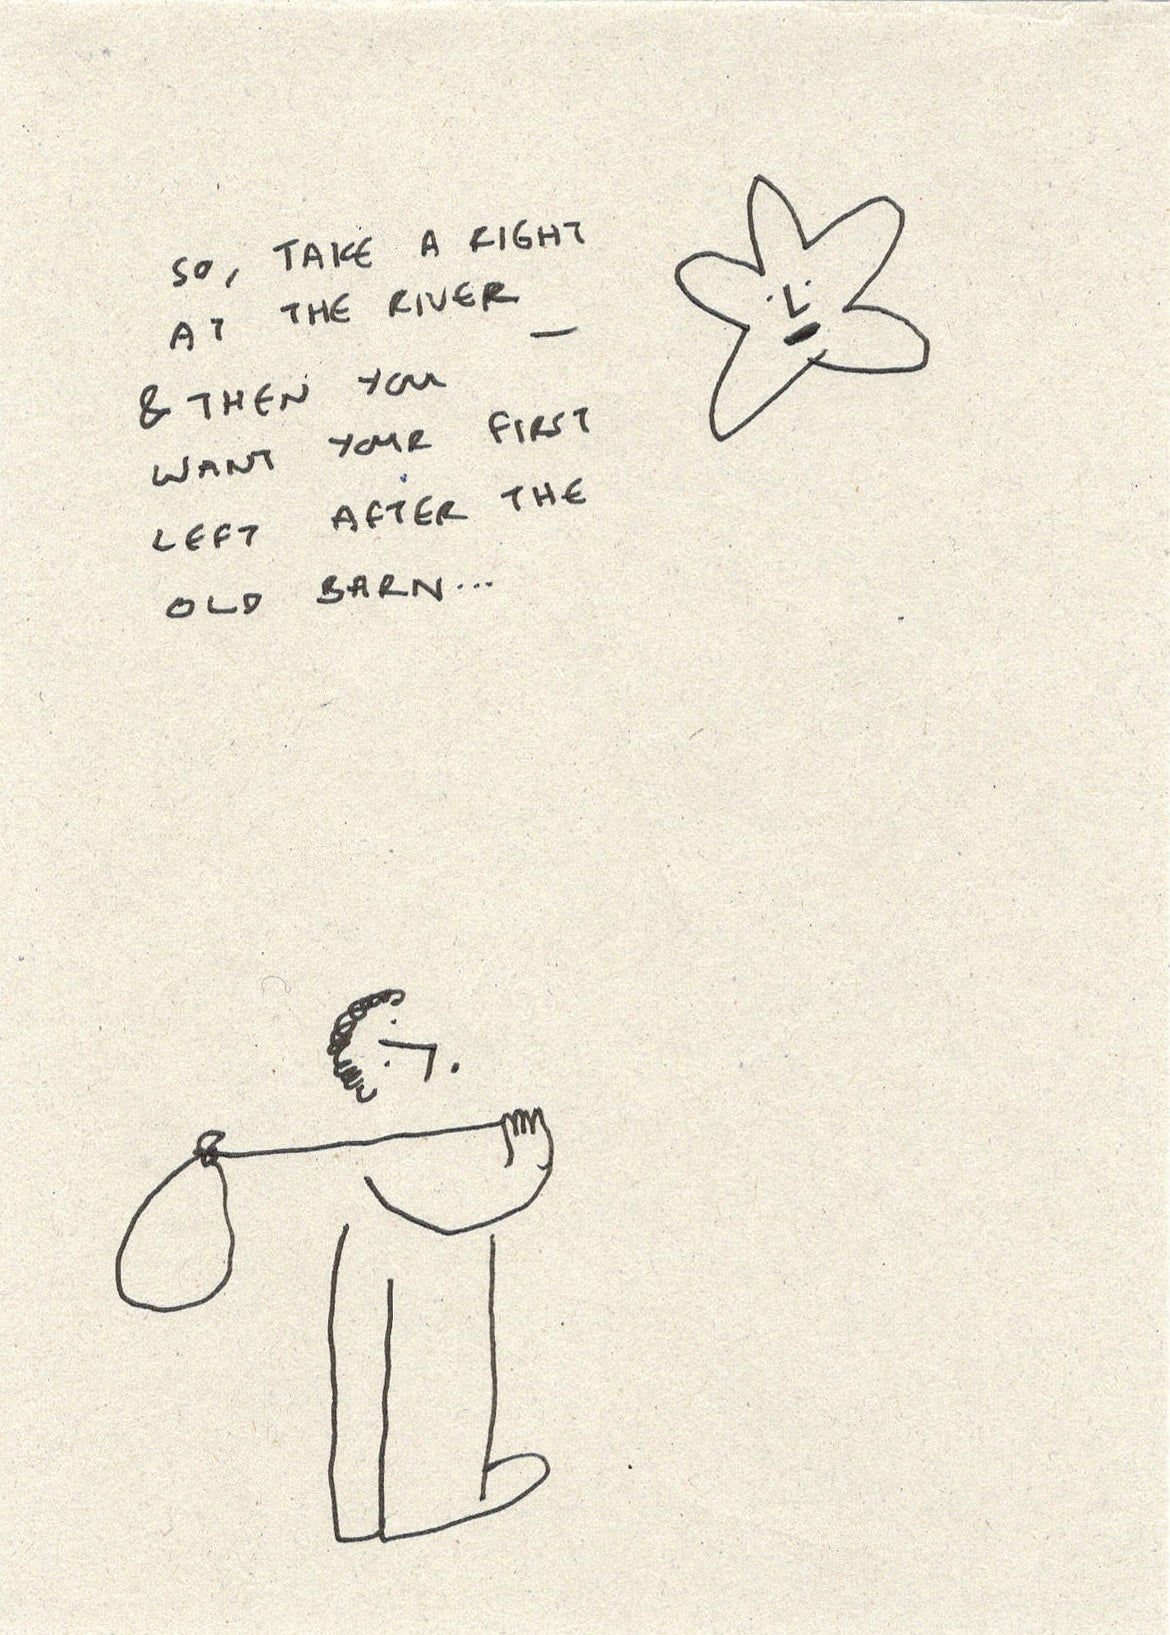 SO, TAKE A RIGHT
AT THE RIVER —
& THEN YOU
WANT YOUR FIRST
LEFT AFTER THE
OLD BARN...